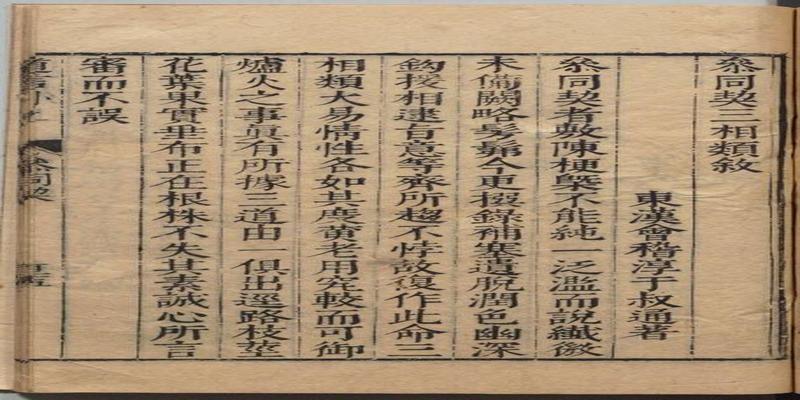 參同契三相類敘
東漢會稽淳于叔通著
參同契者敷陳梗槩不能純一泛濫而說纖微
未備闕略髣髴今更撰錄補塞遺脫潤色幽深
鈎援相逮旨意等齊所趨不悖故復作此命三
相類大易情性各如其度黃老用究較而可御
爐火之事眞有所據三道由一俱出逕路枝莖
花葉果實垂布正在根株不失其素誠心所言
審而不誤
參同契